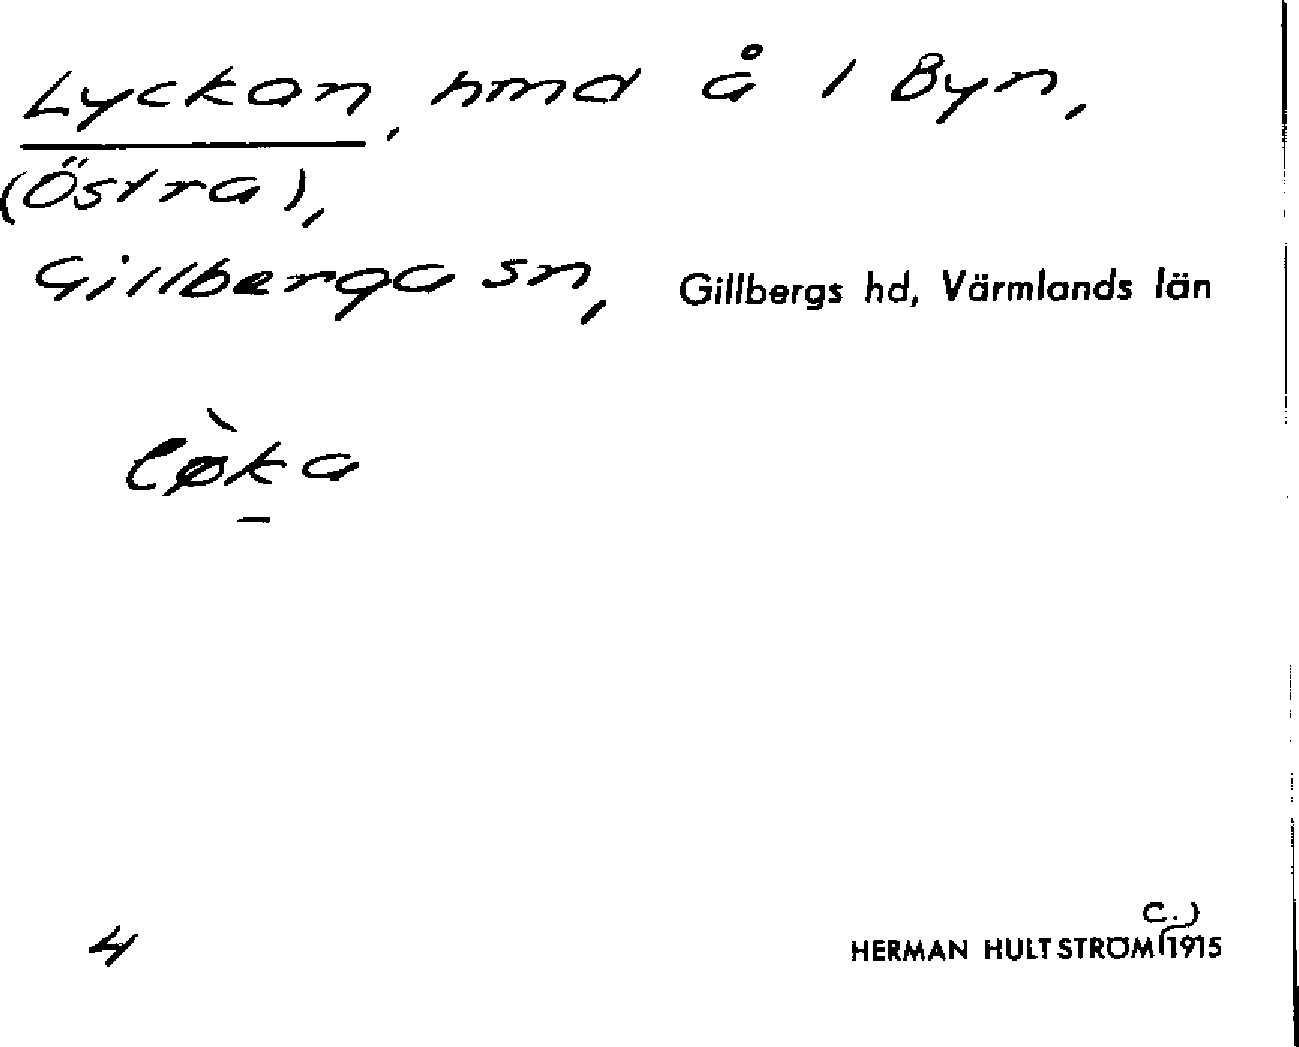 Lyckan, hmd å 1 Byn,
(Östra),
Gillberga sn, Gillbergs hd, Värmlands län
lø̀ka
4
HERMAN HULTSTRÖM (C.) 1915